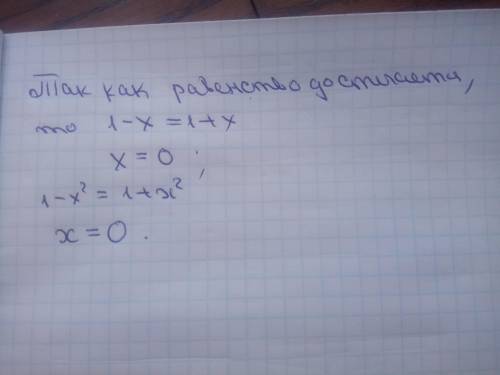 Так как равенство достигается,
то 1-x = 1+x
x = 0 ;
1-x² = 1+x²
x = 0 .